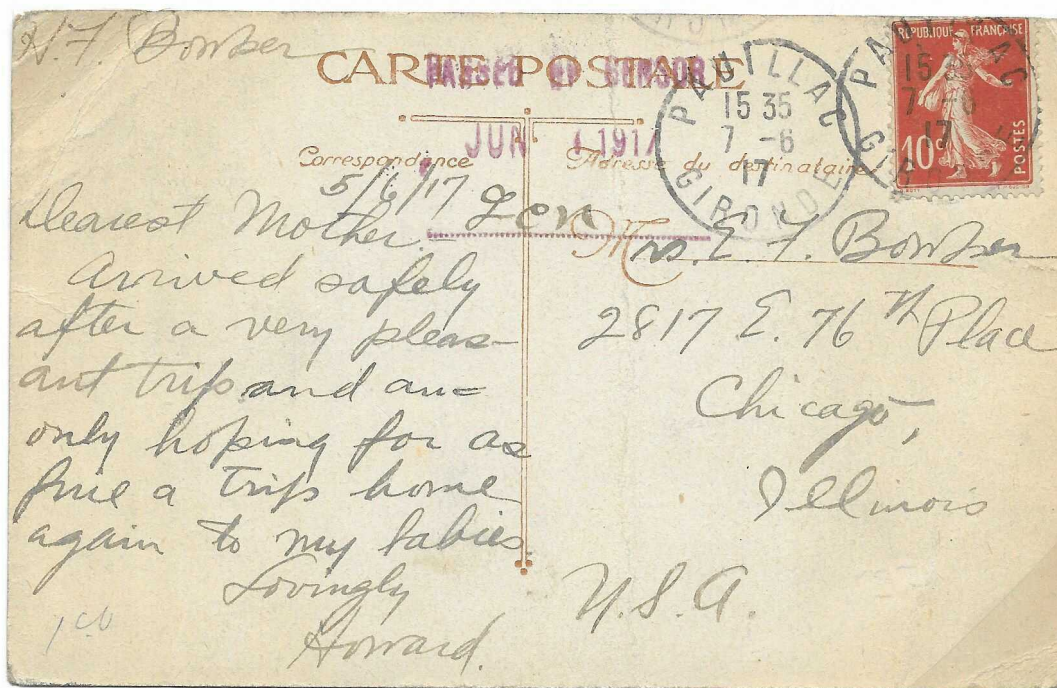 H. F. Bowser
CARTE POSTALE
PASSED BY CENSOR
JUN 1917
Correspondance
Adresse du destinataire
PAUILLAC
15 35
7 -6
17
GIRONDE
PAUILLAC
15 35
7 -6
17
GIRONDE
REPUBLIQUE FRANÇAISE
10c
POSTES
5/6/17
Dearest Mother.
Arrived safely
after a very pleas-
ant trip and am
only hoping for as
fine a trip home
again to my babies.
Lovingly
Howard.
Mrs. E. F. Bowser
2817 E. 76th Place
Chicago,
Illinois
U.S.A.